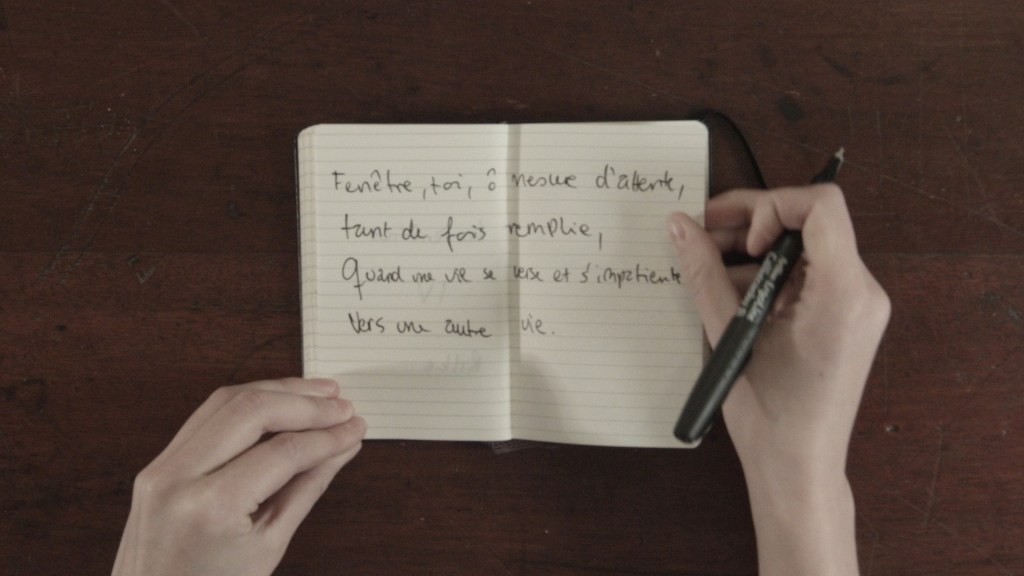 Fenêtre, toi, ô mesure d'attente,
tant de fois remplie,
Quand une vie se verse et s'impatiente
Vers une autre vie.